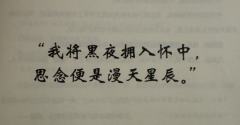 “我将黑夜拥入怀中，
思念便是漫天星辰。”